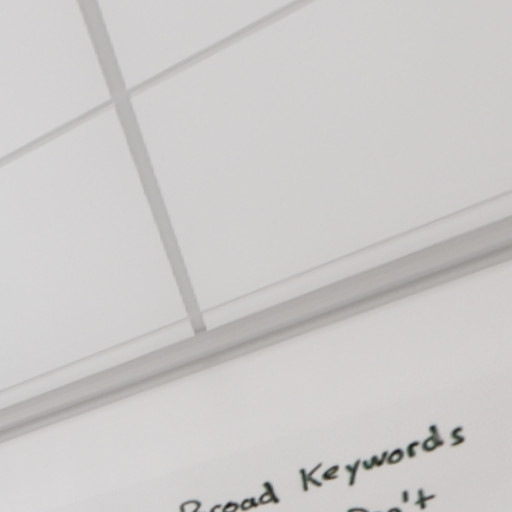 Broad Keywords
Don't